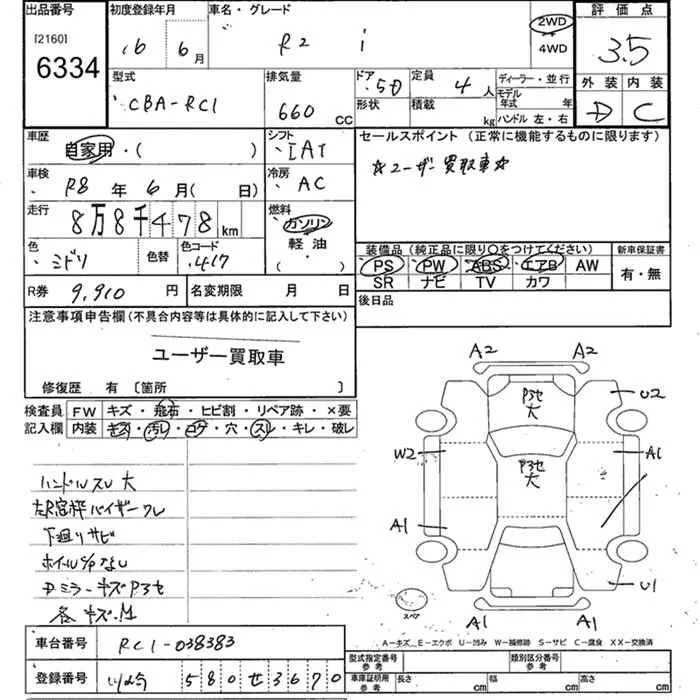 出品番号
[2160]
6334
初度登録年月
16年 6月
車名・グレード
R2 i
2WD
4WD
評価点
3.5
外装 内装
D C
型式
CBA-RC1
排気量
660 CC
ドア 5D
形状
定員 4人
積載 kg
ディーラー・並行
モデル年式 年
ハンドル 左・右
車歴
自家用・( )
シフト
IAT
セールスポイント (正常に機能するものに限ります)
☆ユーザー買取車☆
車検
R8年 6月( 日)
冷房
AC
走行
8万8千478km
燃料
ガソリン
軽油
( )
色
ミドリ
色替
色コード
417
装備品 (純正品に限り○をつけてください)
PS PW ABS エアB AW
SR ナビ TV カワ
新車保証書
有・無
R券 9,910円
名変期限 月 日
後日品
注意事項申告欄(不具合内容等は具体的に記入して下さい)
ユーザー買取車
修復歴 有 〔箇所 〕
検査員
記入欄
FW キズ・飛石・ヒビ割・リペア跡・×要
内装 キズ・汚レ・コゲ・穴・スレ・キレ・破レ
ハンドルスレ大
下廻りサビ
A2 A2
P3セ
大
U2
W2
P3セ
大
A1
A1
U1
スペア
A1 A1
A―キズ E―エクボ U―凹み W―補修跡 S―サビ C―腐食 XX―交換済
車台番号 RC1-038383
登録番号 580せ3670
型式指定番号
参考
類別区分番号
参考
車庫証明用
参考
長さ cm 幅 cm 高さ cm